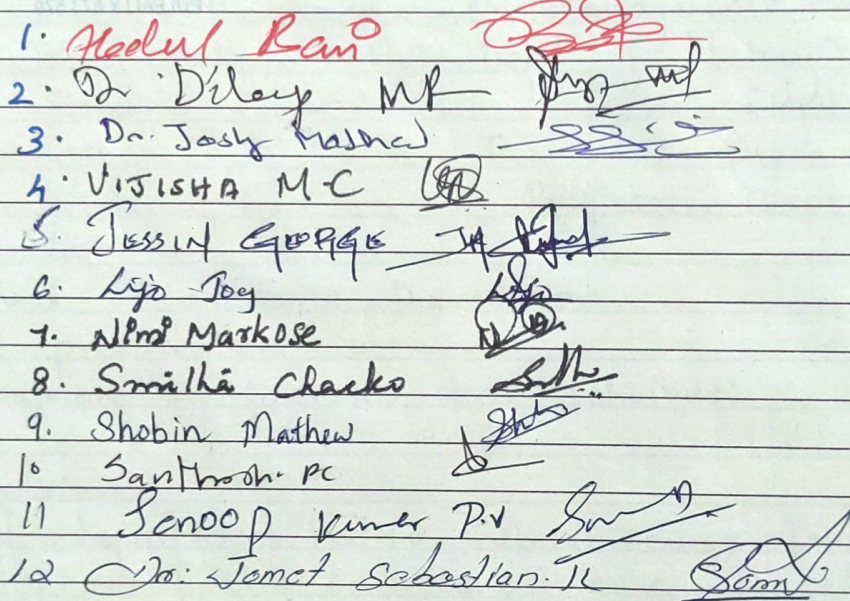 1. Abdul Rani
2. Dr. Dileep MR
3. Dr. Josly Mathew
4. VIJISHA M.C
5. JESSIN GEORGE
6. Lijo Joy
7. Nimi Markose
8. Smitha Chacko
9. Shobin Mathew
10 Santhosh. PC
11 Sanoop Kumar P.V
12 Dr. Jomet Sebastian. K